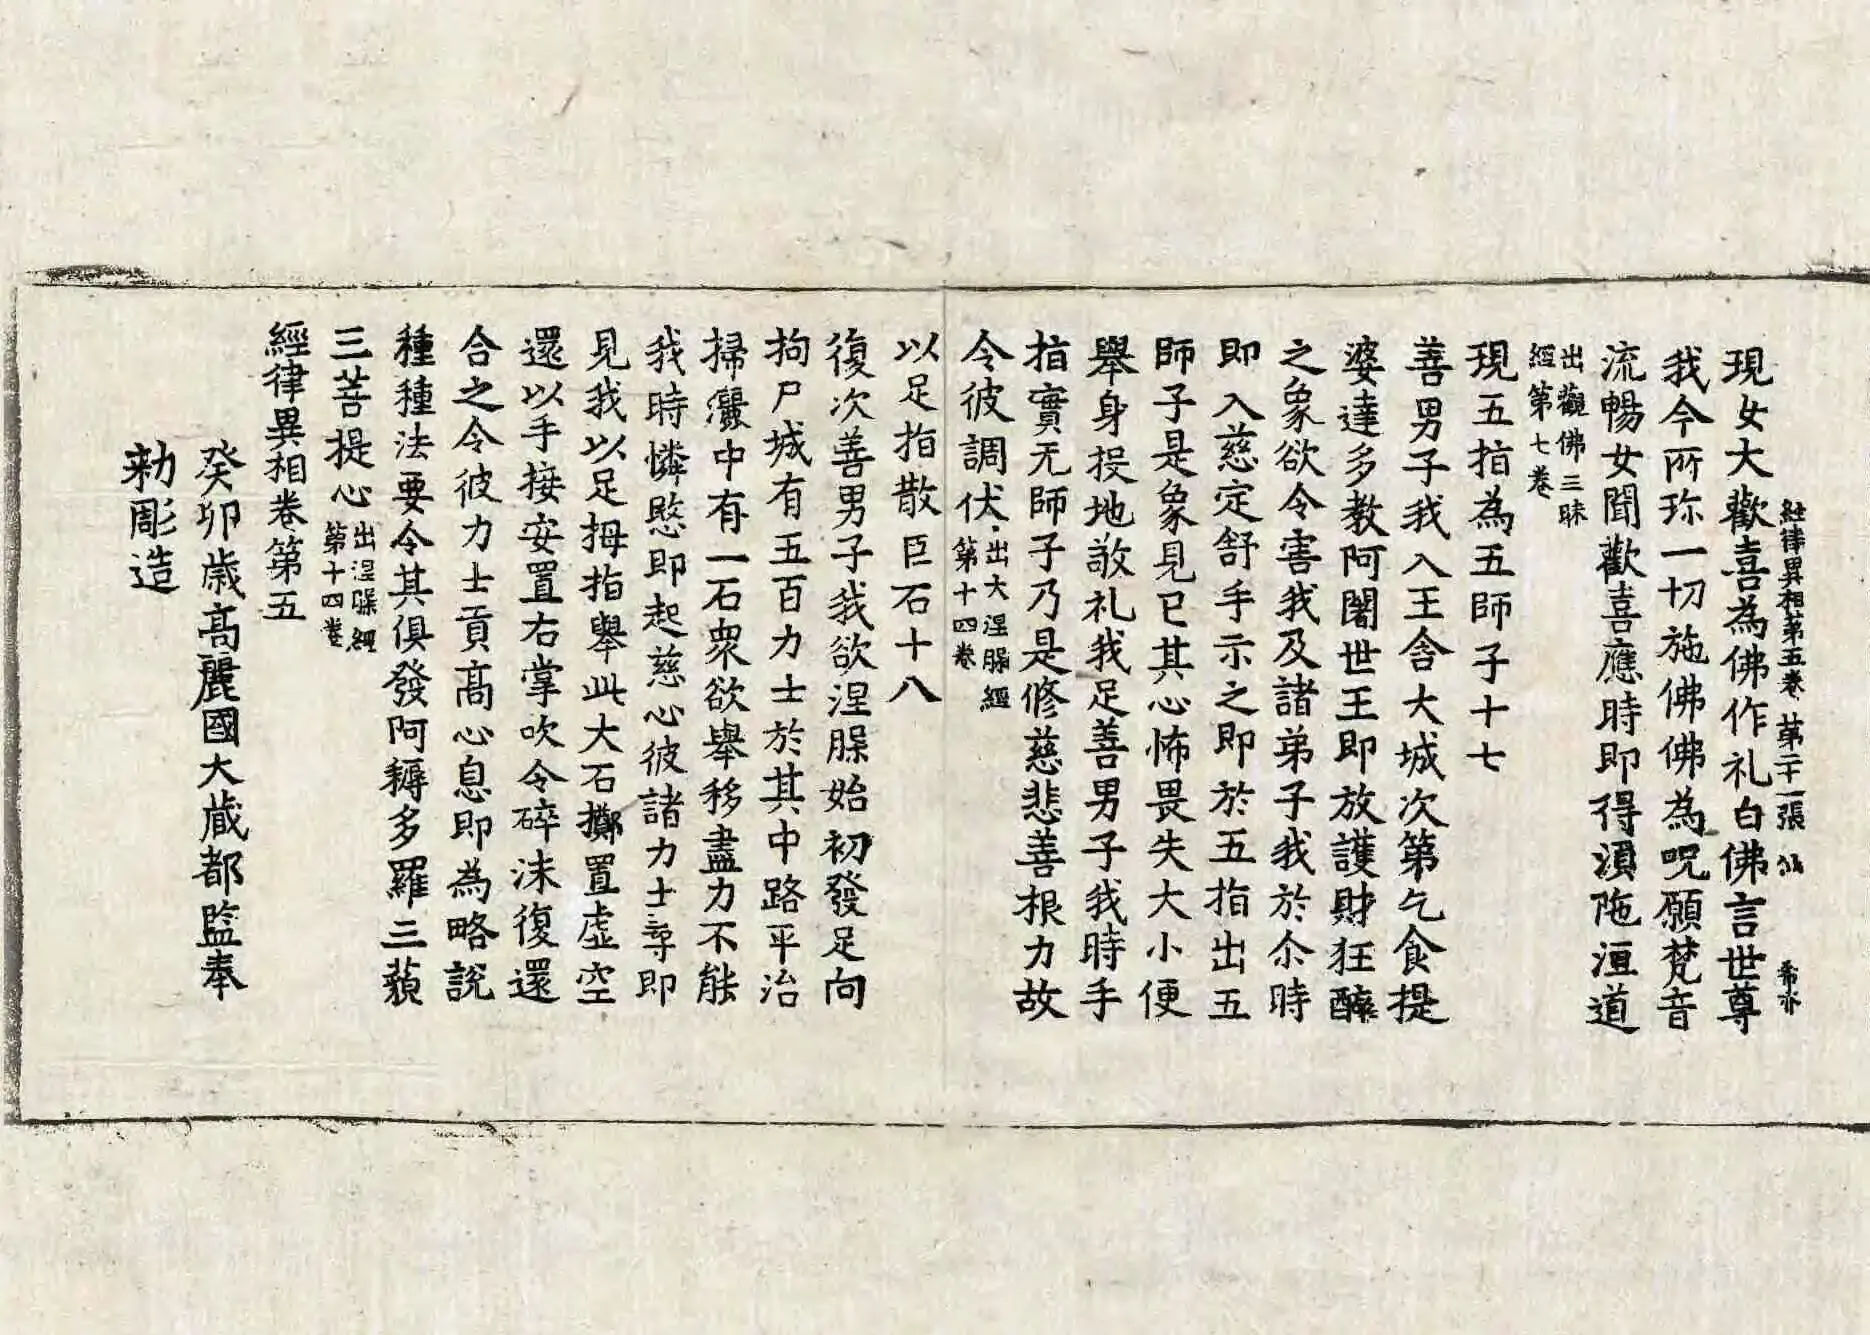 經律異相第五卷 第二十一張 仙
現女大歡喜為佛作礼白佛言世尊
我今所珎一切施佛佛為呪願梵音
流暢女聞歡喜應時即得湏陁洹道
出觀佛三昧
經第七卷
現五指為五師子十七
善男子我入王舍大城次第乞食提
婆達多教阿闍世王即放護財狂醉
之象欲令害我及諸弟子我於尒時
即入慈定舒手示之即於五指出五
師子是象見已其心怖畏失大小便
舉身投地敬礼我足善男子我時手
指實无師子乃是修慈悲善根力故
令彼調伏出大涅槃經
第十四卷
以足指散巨石十八
復次善男子我欲涅槃始初發足向
拘尸城有五百力士於其中路平治
掃灑中有一石衆欲舉移盡力不能
我時憐愍即起慈心彼諸力士尋即
見我以足拇指舉此大石擲置虛空
還以手接安置右掌吹令碎沫復還
合之令彼力士貢髙心息即為略說
種種法要令其俱發阿耨多羅三藐
三菩提心出涅槃經
第十四卷
經律異相卷第五
癸卯歳髙麗國大蔵都監奉
勑彫造